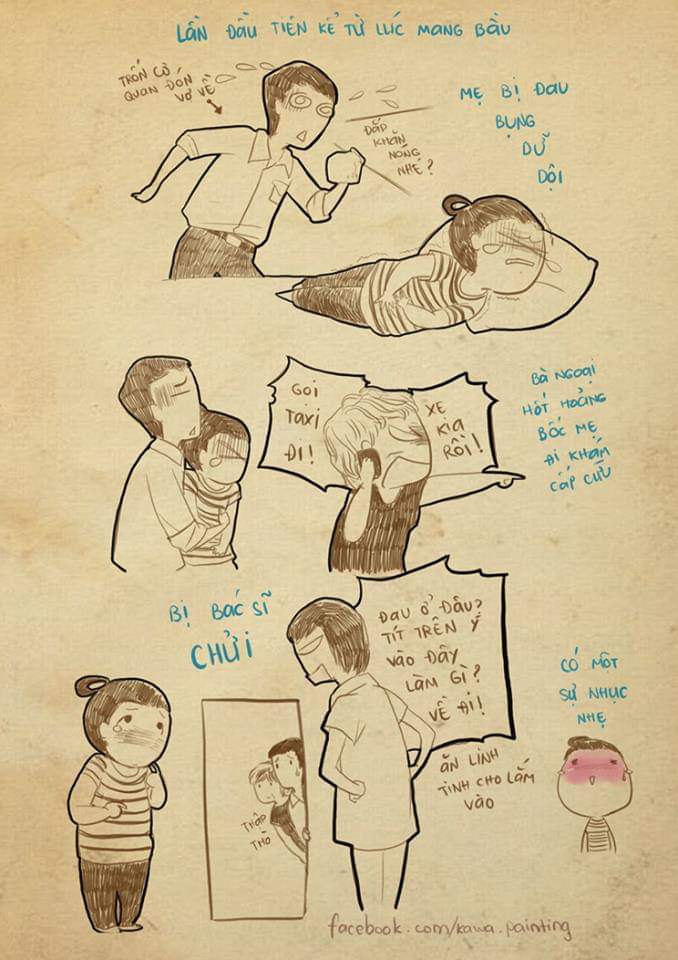 LẦN ĐẦU TIÊN KỂ TỪ LÚC MANG BẦU
TRỐN CƠ
QUAN ĐÓN
VỢ VỀ
MẸ BỊ ĐAU
BỤNG
DỮ
DỘI
ĐẮP
KHĂN
NÓNG
NHÉ?
GỌI
TAXI
ĐI!
XE
KIA
RỒI!
BÀ NGOẠI
HỐT HOẢNG
BỐC MẸ
ĐI KHÁM
CẤP CỨU
BỊ BÁC SĨ
CHỬI
ĐAU Ở ĐÂU?
TÍT TRÊN Ý
VÀO ĐÂY
LÀM GÌ?
VỀ ĐI!
ĂN LINH
TINH CHO LẮM
VÀO
CÓ MỘT
SỰ NHỤC
NHẸ
THẬP
THÒ
facebook.com/kawa.painting